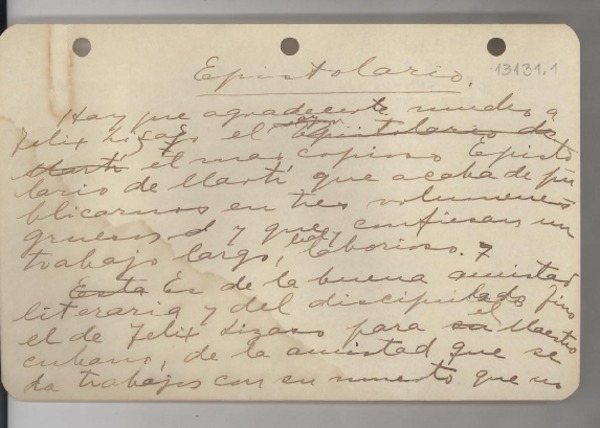 Epistolario.
13131.1
Hay que agradecerle mucho a
Felix Lizaso el epistolario de
Martí, el mas copioso Episto
lario de Martí, que acaba de pu
blicarnos en tres volumenes
gruesos y que confiesan un
trabajo largo, laborioso.
Esta Es de la buena amistad
literaria y del discipulado fino
el de Felix Lizaso para su el Maestro
cubano, de la amistad que se
da trabajos con su muerto que no